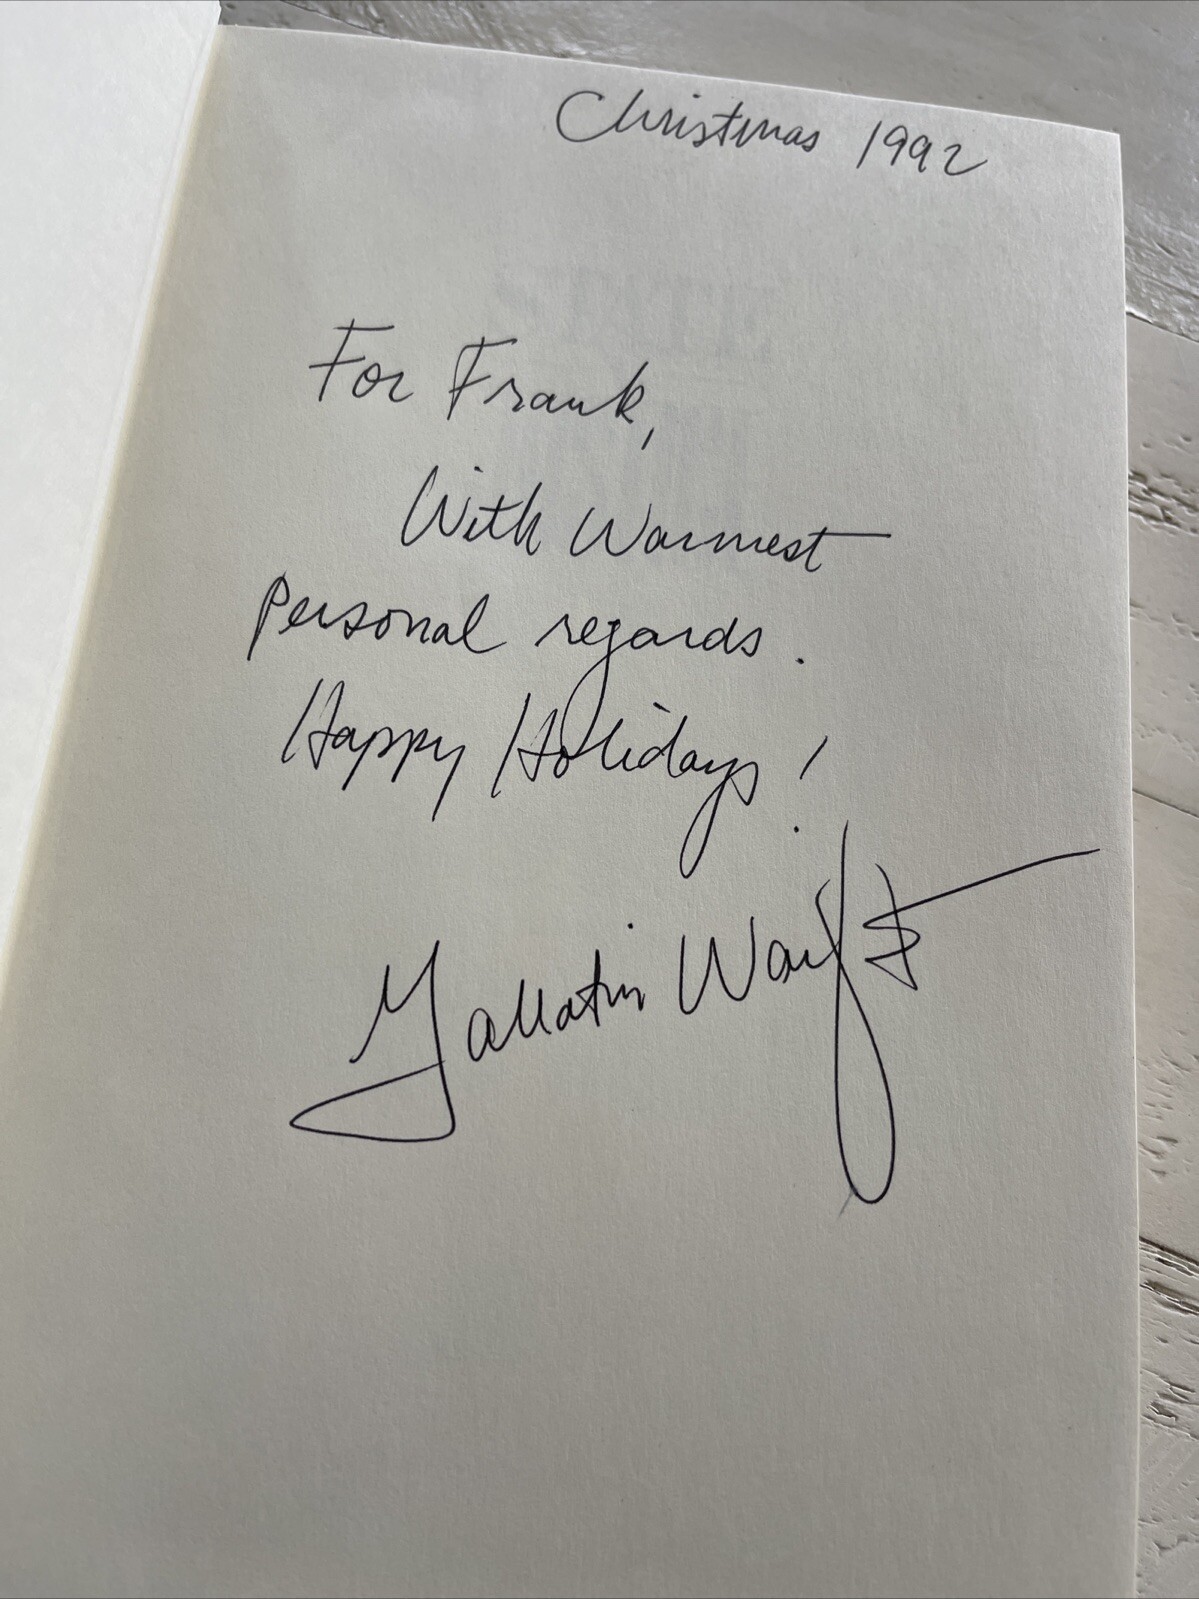 Christmas 1992
For Frank,
With Warmest
Personal regards.
Happy Holidays!
Gallatin Warfield